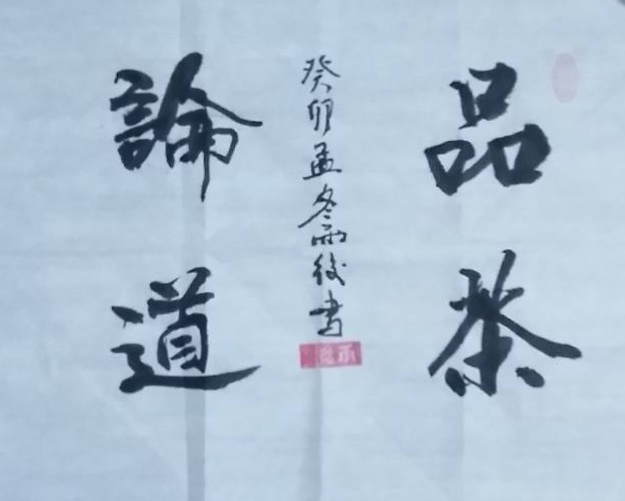 品茶
癸卯孟冬雨後書
論道